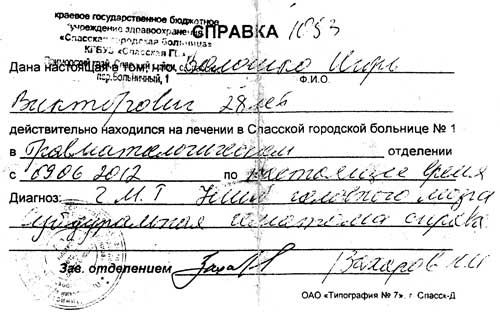 краевое государственное бюджетное
учреждение здравоохранения
«Спасская городская больница»
КГБУЗ «Спасская ГБ»
Приморский край,
пер. Больничный, 1
СПРАВКА 1053
Дана настоящая в том, что Волошко Игорь
Ф.И.О.
Викторович 28 лет
действительно находился на лечении в Спасской городской больнице № 1
в Травматологическом отделении
с 09 06 2012 по настоящие время
Диагноз: ЧМТ Ушиб головного мозга
субдуральная гематома справа
Зав. отделением Захаров
ОАО «Типография № 7». г Спасск-Д